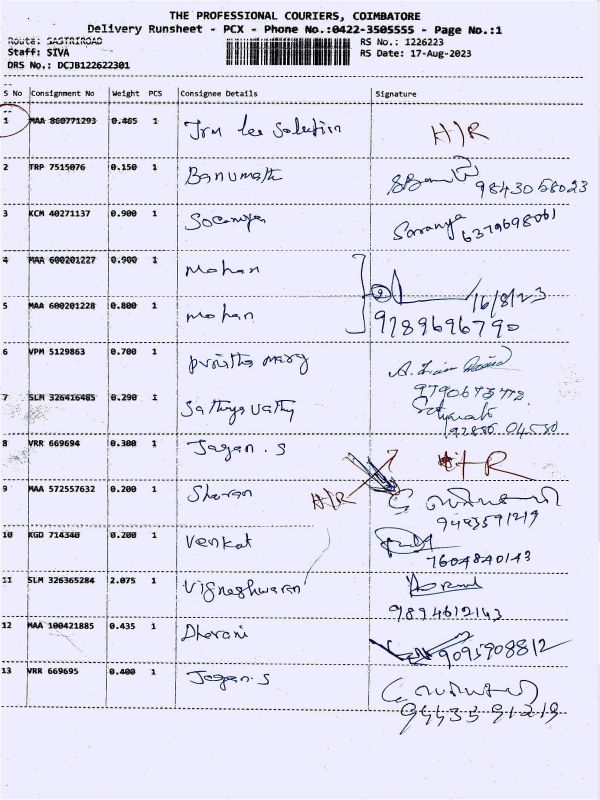 THE PROFESSIONAL COURIERS, COIMBATORE
Delivery Runsheet - PCX - Phone No.:0422-3505555 - Page No.:1
Route: SASTRIROAD RS No.: 1226223
Staff: SIVA RS Date: 17-Aug-2023
DRS No.: DCJB122622301
S No Consignment No Weight PCS Consignee Details Signature
1 MAA 860771293 0.485 1 H/R
2 TRP 7515076 0.150 1 Banumath 9843058023
3 KCM 40271137 0.900 1 Saranya 6379698061
4 MAA 600201227 0.900 1 Mohan
16/8/23
5 MAA 600201228 0.800 1 Mohan 9789696790
6 VPM 5129863 0.700 1 mary
7 SLM 326416485 0.290 1 Sathyavathy
8 VRR 669694 0.300 1 Jagan.S H/R
9 MAA 572557632 0.200 1 Sharan H/R
10 KGD 714340 0.200 1 Venkat 7604840143
11 SLM 326365284 2.075 1 Vigneshwaran 9894612143
12 MAA 100421885 0.435 1 Dharani 9095908812
13 VRR 669695 0.400 1 Jagan.S 9443591219